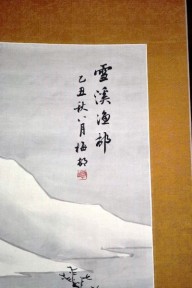 雪溪漁部
乙丑秋八月梅部